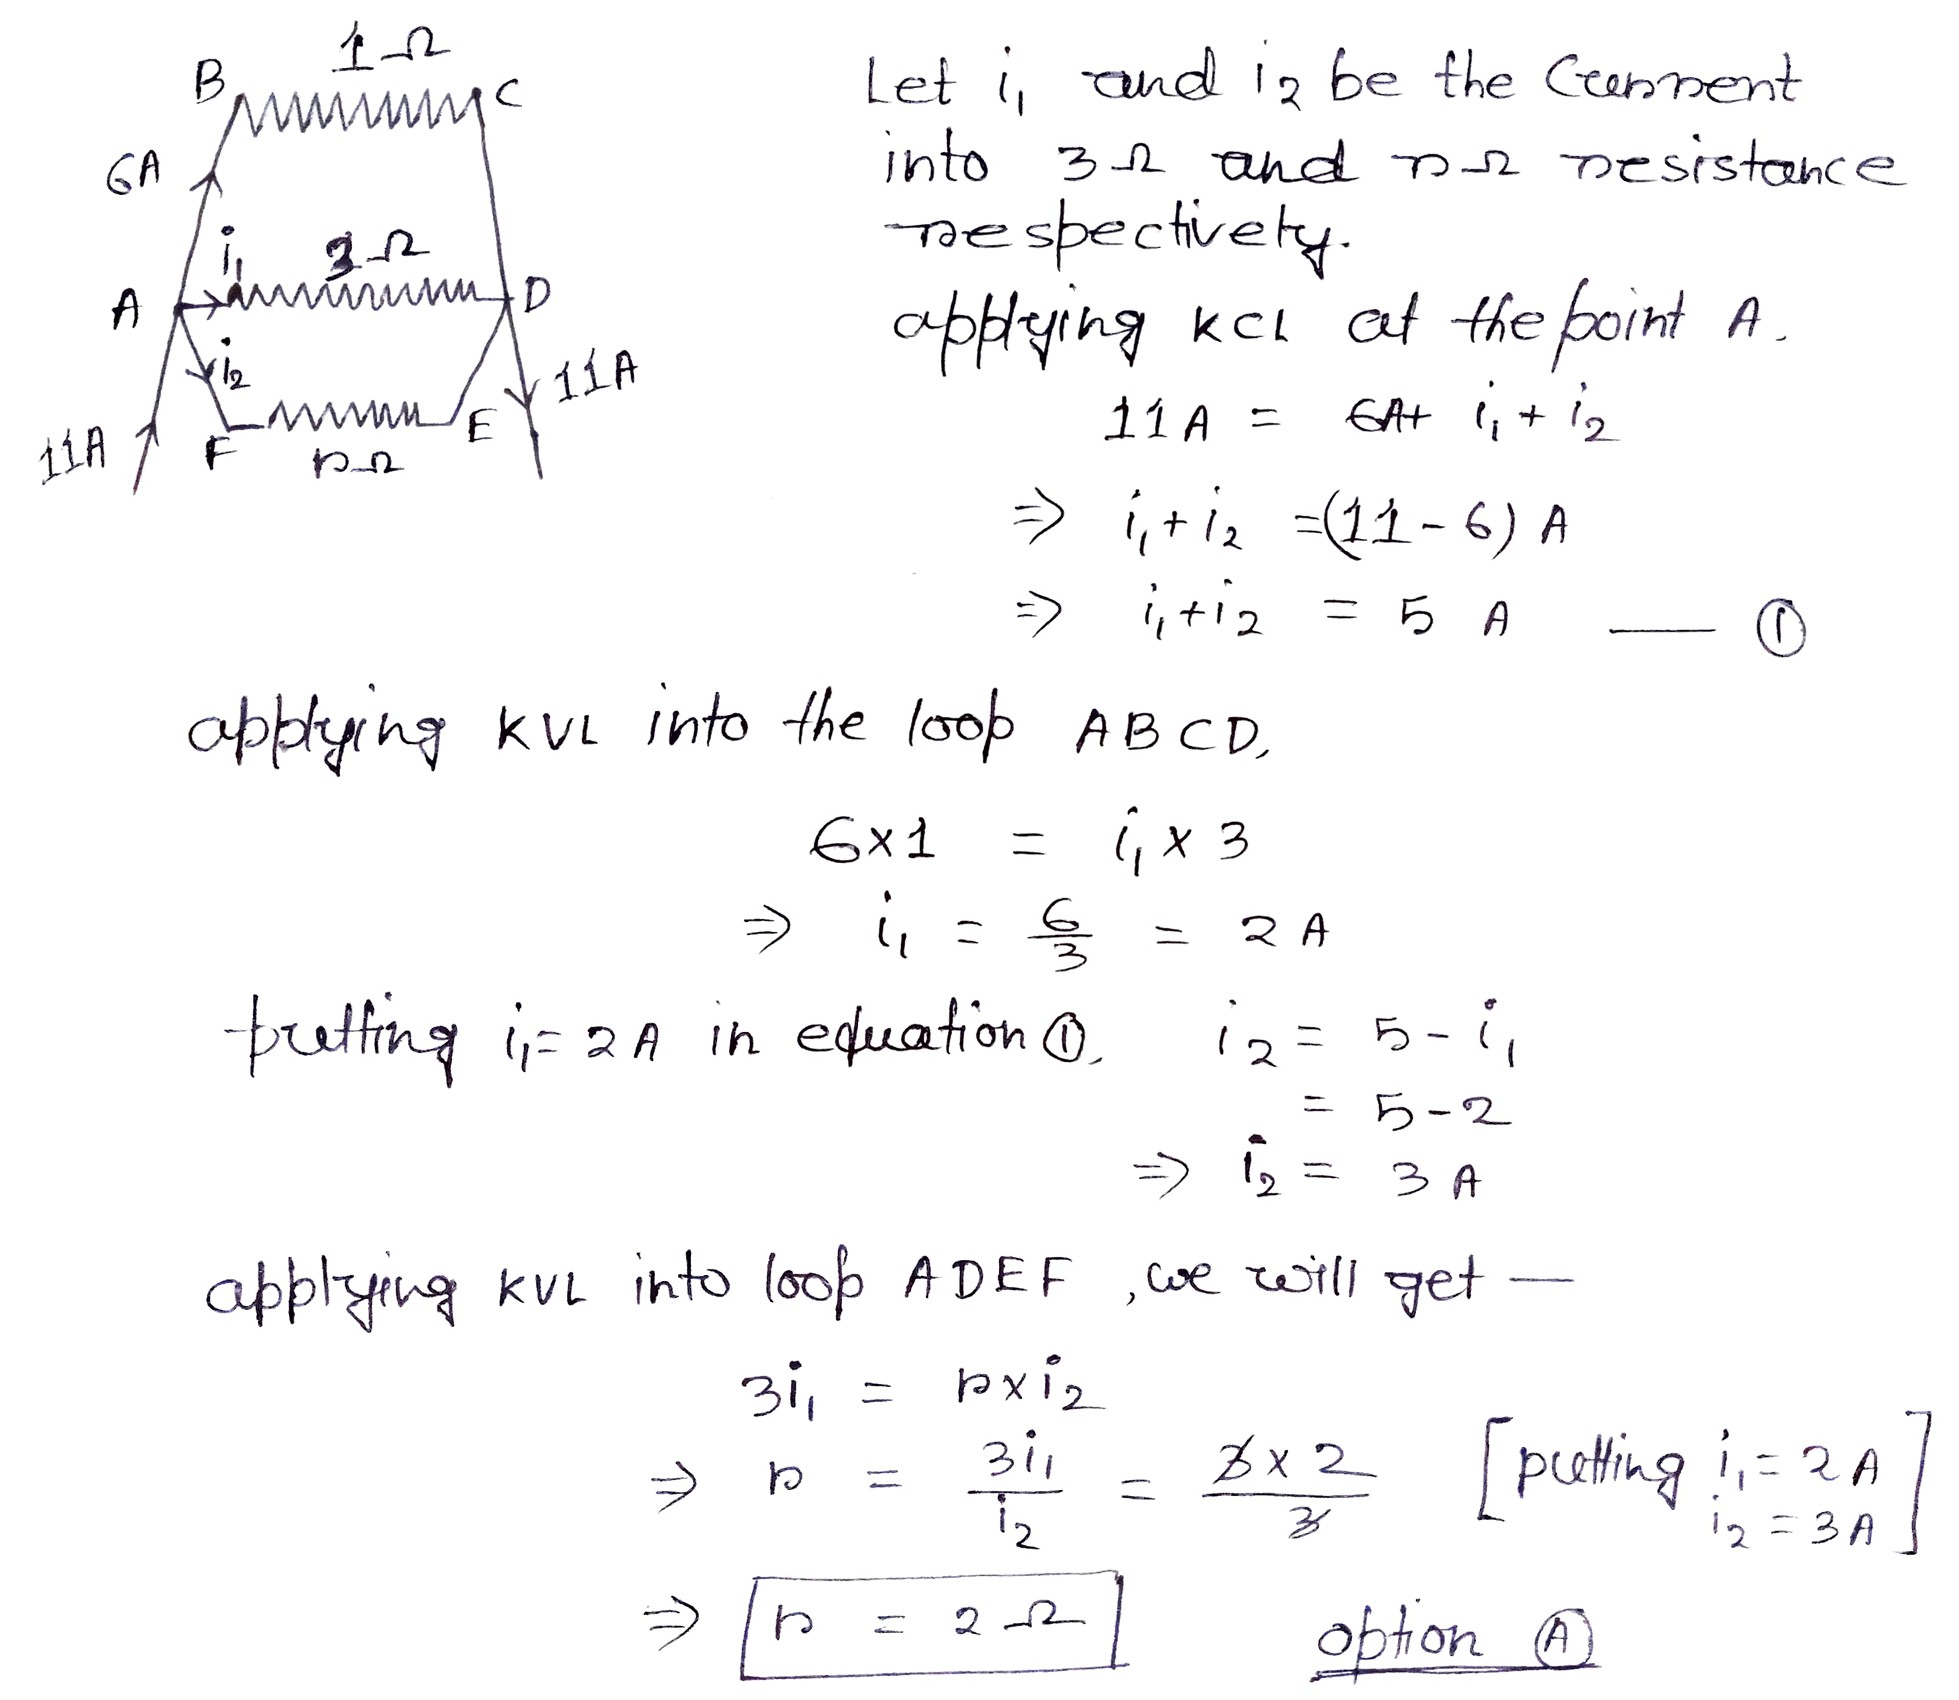 1 Ω
B
C
6A
i₁
3 Ω
A
D
i₂
11A
11A
F
E
r Ω
Let i₁ and i₂ be the Current
into 3 Ω and r Ω resistance
respectively.
applying KCL at the point A.
11 A = 6A + i₁ + i₂
⇒ i₁ + i₂ = (11 - 6) A
⇒ i₁ + i₂ = 5 A — ①
applying KVL into the loop ABCD,
6 × 1 = i₁ × 3
⇒ i₁ = 6/3 = 2 A
putting i₁ = 2 A in equation ①, i₂ = 5 - i₁
= 5 - 2
⇒ i₂ = 3 A
applying KVL into loop ADEF, we will get —
3i₁ = r × i₂
⇒ r = 3i₁/i₂ = 3 × 2/3 [putting i₁ = 2 A
i₂ = 3A]
⇒ r = 2 Ω
option Ⓐ